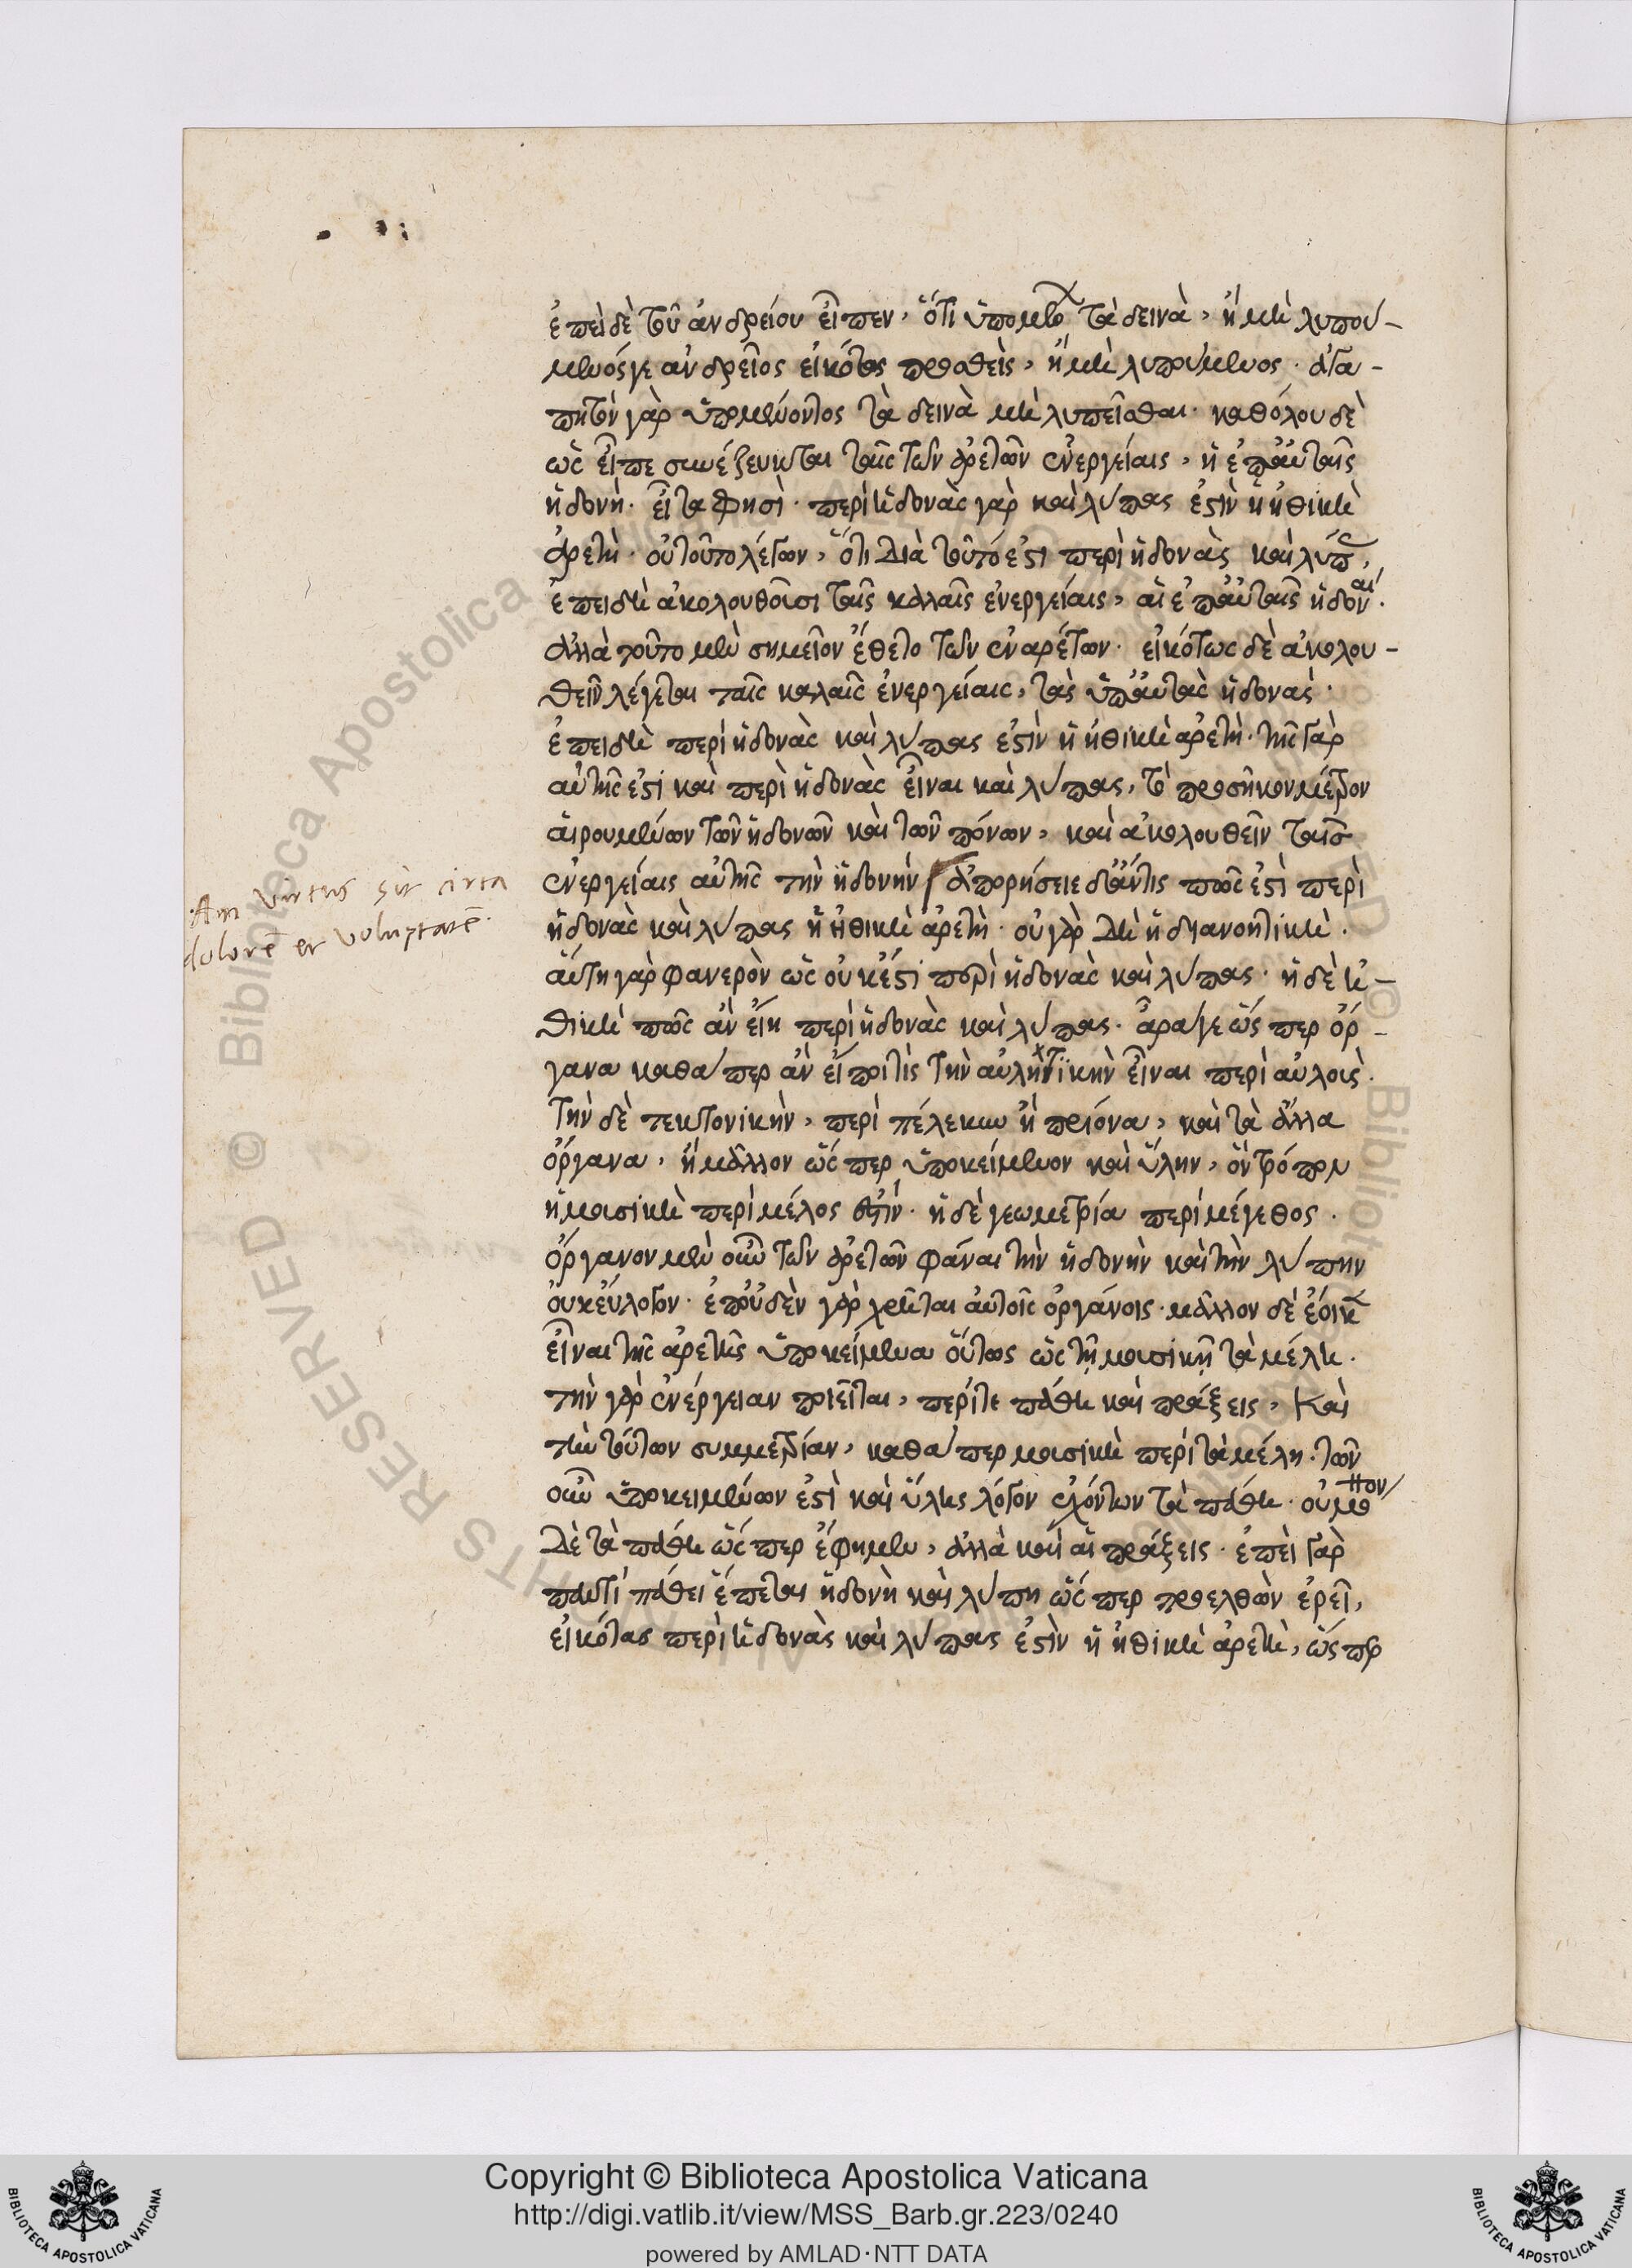 ἐπεὶ δὲ τοῦ ἀνδρείου εἶπεν, ὅτι ὑπομένων τὰ δεινὰ, ἢ μὴ λυπού-
μενός γε ἀνδρεῖος εἰκότως προσθεὶς, ἢ μὴ λυπούμενος. ἀγα-
πητὸν γὰρ ὑπομένοντος τὰ δεινὰ μὴ λυπεῖσθαι. καθόλου δὲ
ὡς εἶπε συνέζευκται ταῖς τῶν ἀρετῶν ἐνεργείαις, ἡ ἐπ' αὐταῖς
ἡδονή. εἶτα φησὶ. περὶ ἡδονὰς γὰρ καὶ λύπας ἐστὶν ἡ ἠθικὴ
ἀρετὴ. οὐ τοῦτο λέγων, ὅτι διὰ τοῦτό ἐστι περὶ ἡδονὰς καὶ λύπ,
ἐπειδὴ ἀκολουθοῦσι ταῖς καλαῖς ἐνεργείαις, αἱ ἐπ' αὐταῖς ἡδοναί.
ἀλλὰ τοῦτο μὲν σημεῖον ἔθετο τῶν ἐναρέτων. εἰκότως δὲ ἀκολου-
θεῖν λέγεται ταῖς καλαῖς ἐνεργείαις, τὰς ὑπ' αὐτὰς ἡδονὰς.
ἐπειδὴ περὶ ἡδονὰς καὶ λύπας ἐστὶν ἡ ἠθικὴ ἀρετὴ. τῆς γὰρ
αὐτῆς ἐστὶ καὶ περὶ ἡδονὰς εἶναι καὶ λύπας, τὸ προσῆκον μέτρον
αἱρουμένων τῶν ἡδονῶν καὶ τῶν πόνων, καὶ ἀκολουθεῖν ταῖς
ἐνεργείαις αὐτῆς τὴν ἡδονήν ἀπορήσειε δ' ἄν τις πῶς ἐστὶ περὶ
ἡδονὰς καὶ λύπας ἡ ἠθικὴ ἀρετὴ. οὐ γὰρ δὴ ἡ διανοητικὴ.
αὕτη γὰρ φανερὸν ὡς οὐκ ἔστι περὶ ἡδονὰς καὶ λύπας. ἡ δὲ ἠ-
θικὴ πῶς ἂν εἴη περὶ ἡδονὰς καὶ λύπας. ἆρα γε ὥς περ ὄρ-
γανα καθάπερ ἂν εἴποι τὶς τὴν αὐλητικὴν εἶναι περὶ αὐλοὺς.
τὴν δὲ τεκτονικὴν, περὶ πέλεκυν ἢ πρίονα, καὶ τὰ ἄλλα
ὄργανα, ἢ μᾶλλον ὥς περ ὑποκείμενον καὶ ὕλην, ὃν τρόπον
ἡ μουσικὴ περὶ μέλος ἐστίν. ἡ δὲ γεωμετρία περὶ μέγεθος.
ὄργανον μὲν οὖν τῶν ἀρετῶν φάναι τὴν ἡδονὴν καὶ τὴν λύπην
οὐκ εὔλογον. ἐπ' οὐδὲν γὰρ χρῆται αὐτοῖς ὀργάνοις. μᾶλλον δὲ ἔοικε
εἶναι τῆς ἀρετῆς ὑποκείμενα οὕτως ὡς τῇ μουσικῇ τὰ μέλη.
τὴν γὰρ ἐνέργειαν ποιεῖται, περί τε πάθη καὶ πράξεις, καὶ
τὴν τούτων συμμετρίαν, καθάπερ μουσικὴ περὶ τὰ μέλη. τῶν
οὖν ὑποκειμένων ἐστὶ καὶ ὕλης λόγον ἐχόντων τὰ πάθη. οὐ μόνον
δὲ τὰ πάθη ὥς περ ἔφημεν, ἀλλὰ καὶ αἱ πράξεις. ἐπεὶ γὰρ
παντὶ πάθει ἕπεται ἡδονὴ καὶ λύπη ὥς περ προελθὼν ἐρεῖ,
εἰκότως περὶ ἡδονὰς καὶ λύπας ἐστὶν ἡ ἠθικὴ ἀρετὴ, ὥς περ
An virtus sit circa
dolorē et voluptatē.
Copyright © Biblioteca Apostolica Vaticana
http://digi.vatlib.it/view/MSS_Barb.gr.223/0240
powered by AMLAD·NTT DATA